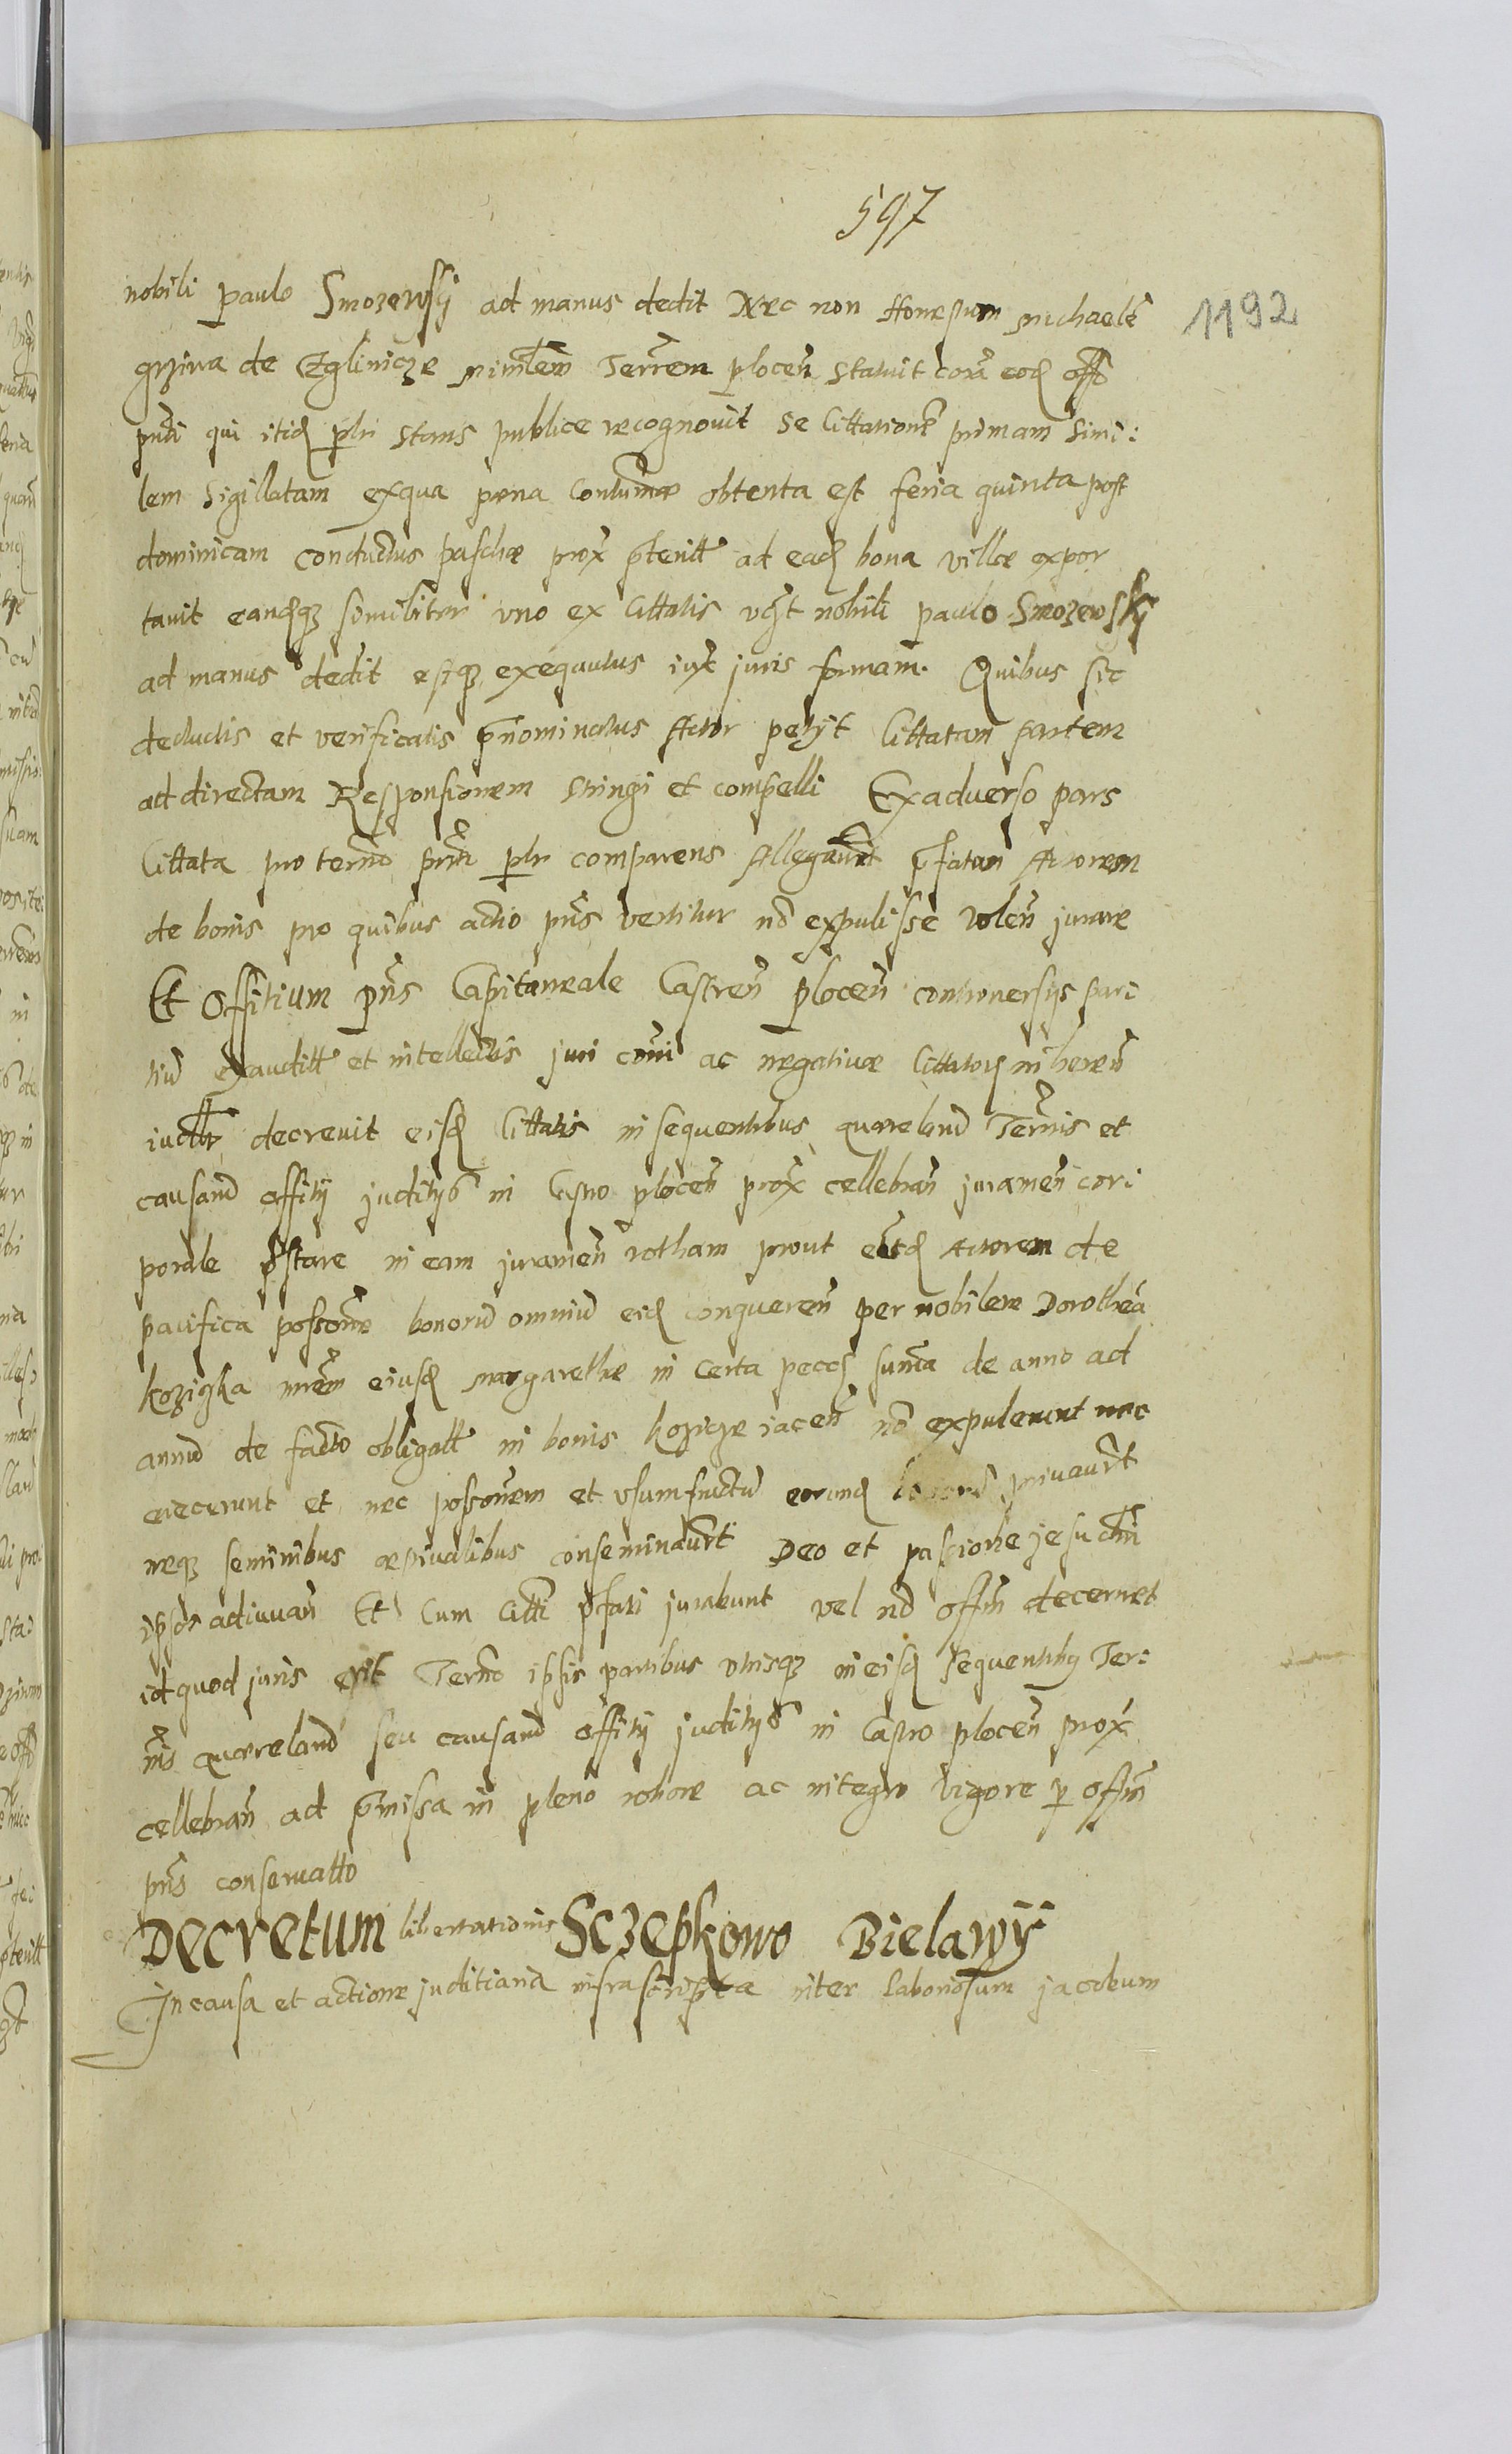 597
1192
nobili paulo Smozewskÿ ad manus dedit Nec non Honestum michaelē
grziwa de Czglinicze minłem Terrēm plocen̄ statuit corā eod off̄o
pn̄ti qui itid pl̄r stans publice recognouit se Cittationē primam Simi:
lem Sigillatam exqua pena Contumae obtenta est feria quinta post
dominicam conductus paschæ prox̄ p̄teritt ad ead bona villæ expor
tauit eandqz similiter vno ex Cittatis vdt̄ nobili paulo Smozewskÿ
ad manus dedit estqz exequutus iux̄t juris formam. Quibus sic
deductis et verificatis p̄nominatus Actor petÿt Cittatam partem
ad directam Responsionem stringi et compelli Exaduerso pars
Cittata pro termō pn̄ti pl̄r comparens Allegaur̄t p̄fatam Actorem
de bonis pro quibus actio pn̄s vertitur nō expulisse volen̄ jurare
Et Offitium pn̄s Capitaneale Castren̄ plocen̄ controuersÿs par:
tiū exauditt et intellectis juri cōmī ac negatiuæ Cittator̄ inheren̄
decreuit eisd Cittatis in sequentibus quærelan̄d Term̄is et
causan̄d offitÿ juditÿs in Castro plocen̄ prox̄ cellebran̄ juramen̄ cor:
porale p̄stare in eam juramen̄ rotham prout eād Actorem de
pacifica possōne bonorū omniū eid conqueren̄ per nobilem Dorotheā
kozicska mrēm eiusd margarethæ in certa pecc̄ sum̄a de anno ad
annū de facto obligatt in bonis kozicze iacen̄ nō expulerunt nec
eiecerunt et nec possōnem et vsumfructū eorund bonorū priuaur̄t
neqz seminibus æstiualibus conseminaur̄t Deo et passione jesu chr̄i
ipsos adiuuan̄ Et Cum Citti p̄fati jurabunt vel nō offm̄ decernet
id quod juris erit Term̄o ipsis partibus vtrisqz in eisd sequentibg Ter:
m̄is quærelan̄d seu causan̄d offitÿ juditÿs in Castro plocen̄ prox̄
cellebran̄ ad p̄missa in pleno robore ac integro vigore p offm̄
pn̄s conseruatto
Decretum libertationis Sczepkowo Bielawÿ
Jn causa et actione juditiaria infrascripta inter laboriosum jacobum